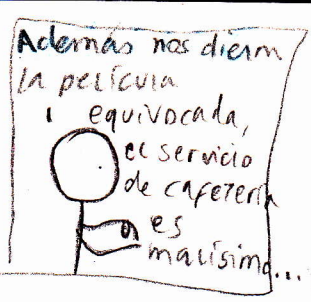 Además nos dieron
la película
equivocada,
el servicio
de cafetería
es
malísimo...